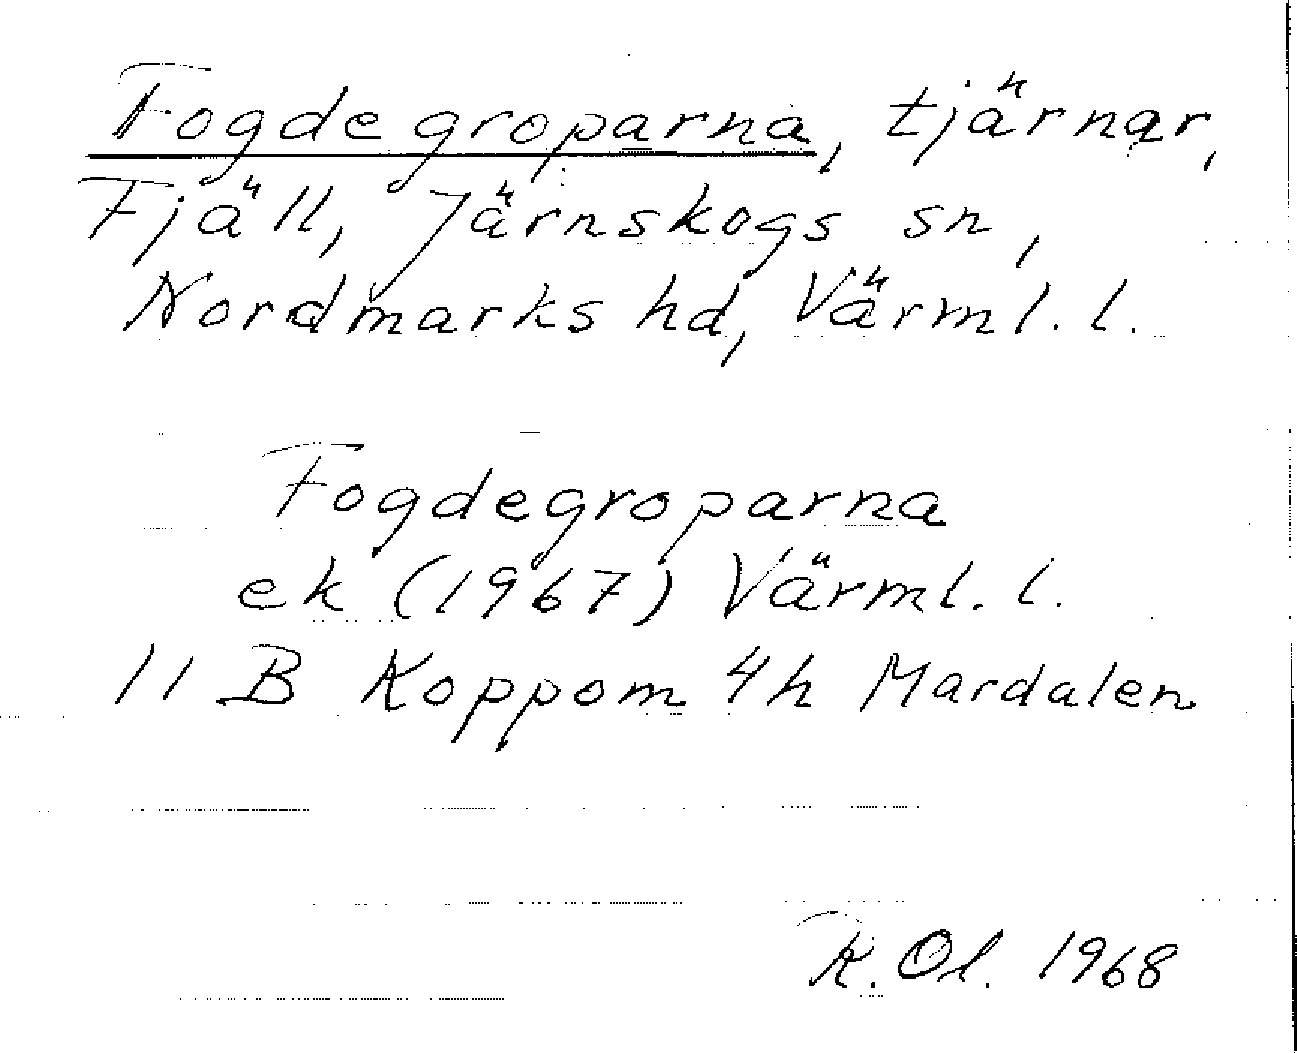 Fogdegroparna, tjärnar,
Fjäll, Järnskogs sn,
Nordmarks hd, Värml. l.
Fogdegroparna
ek (1967) Värml. l.
11 B Koppom 4h Mardalen
R. Ol. 1968